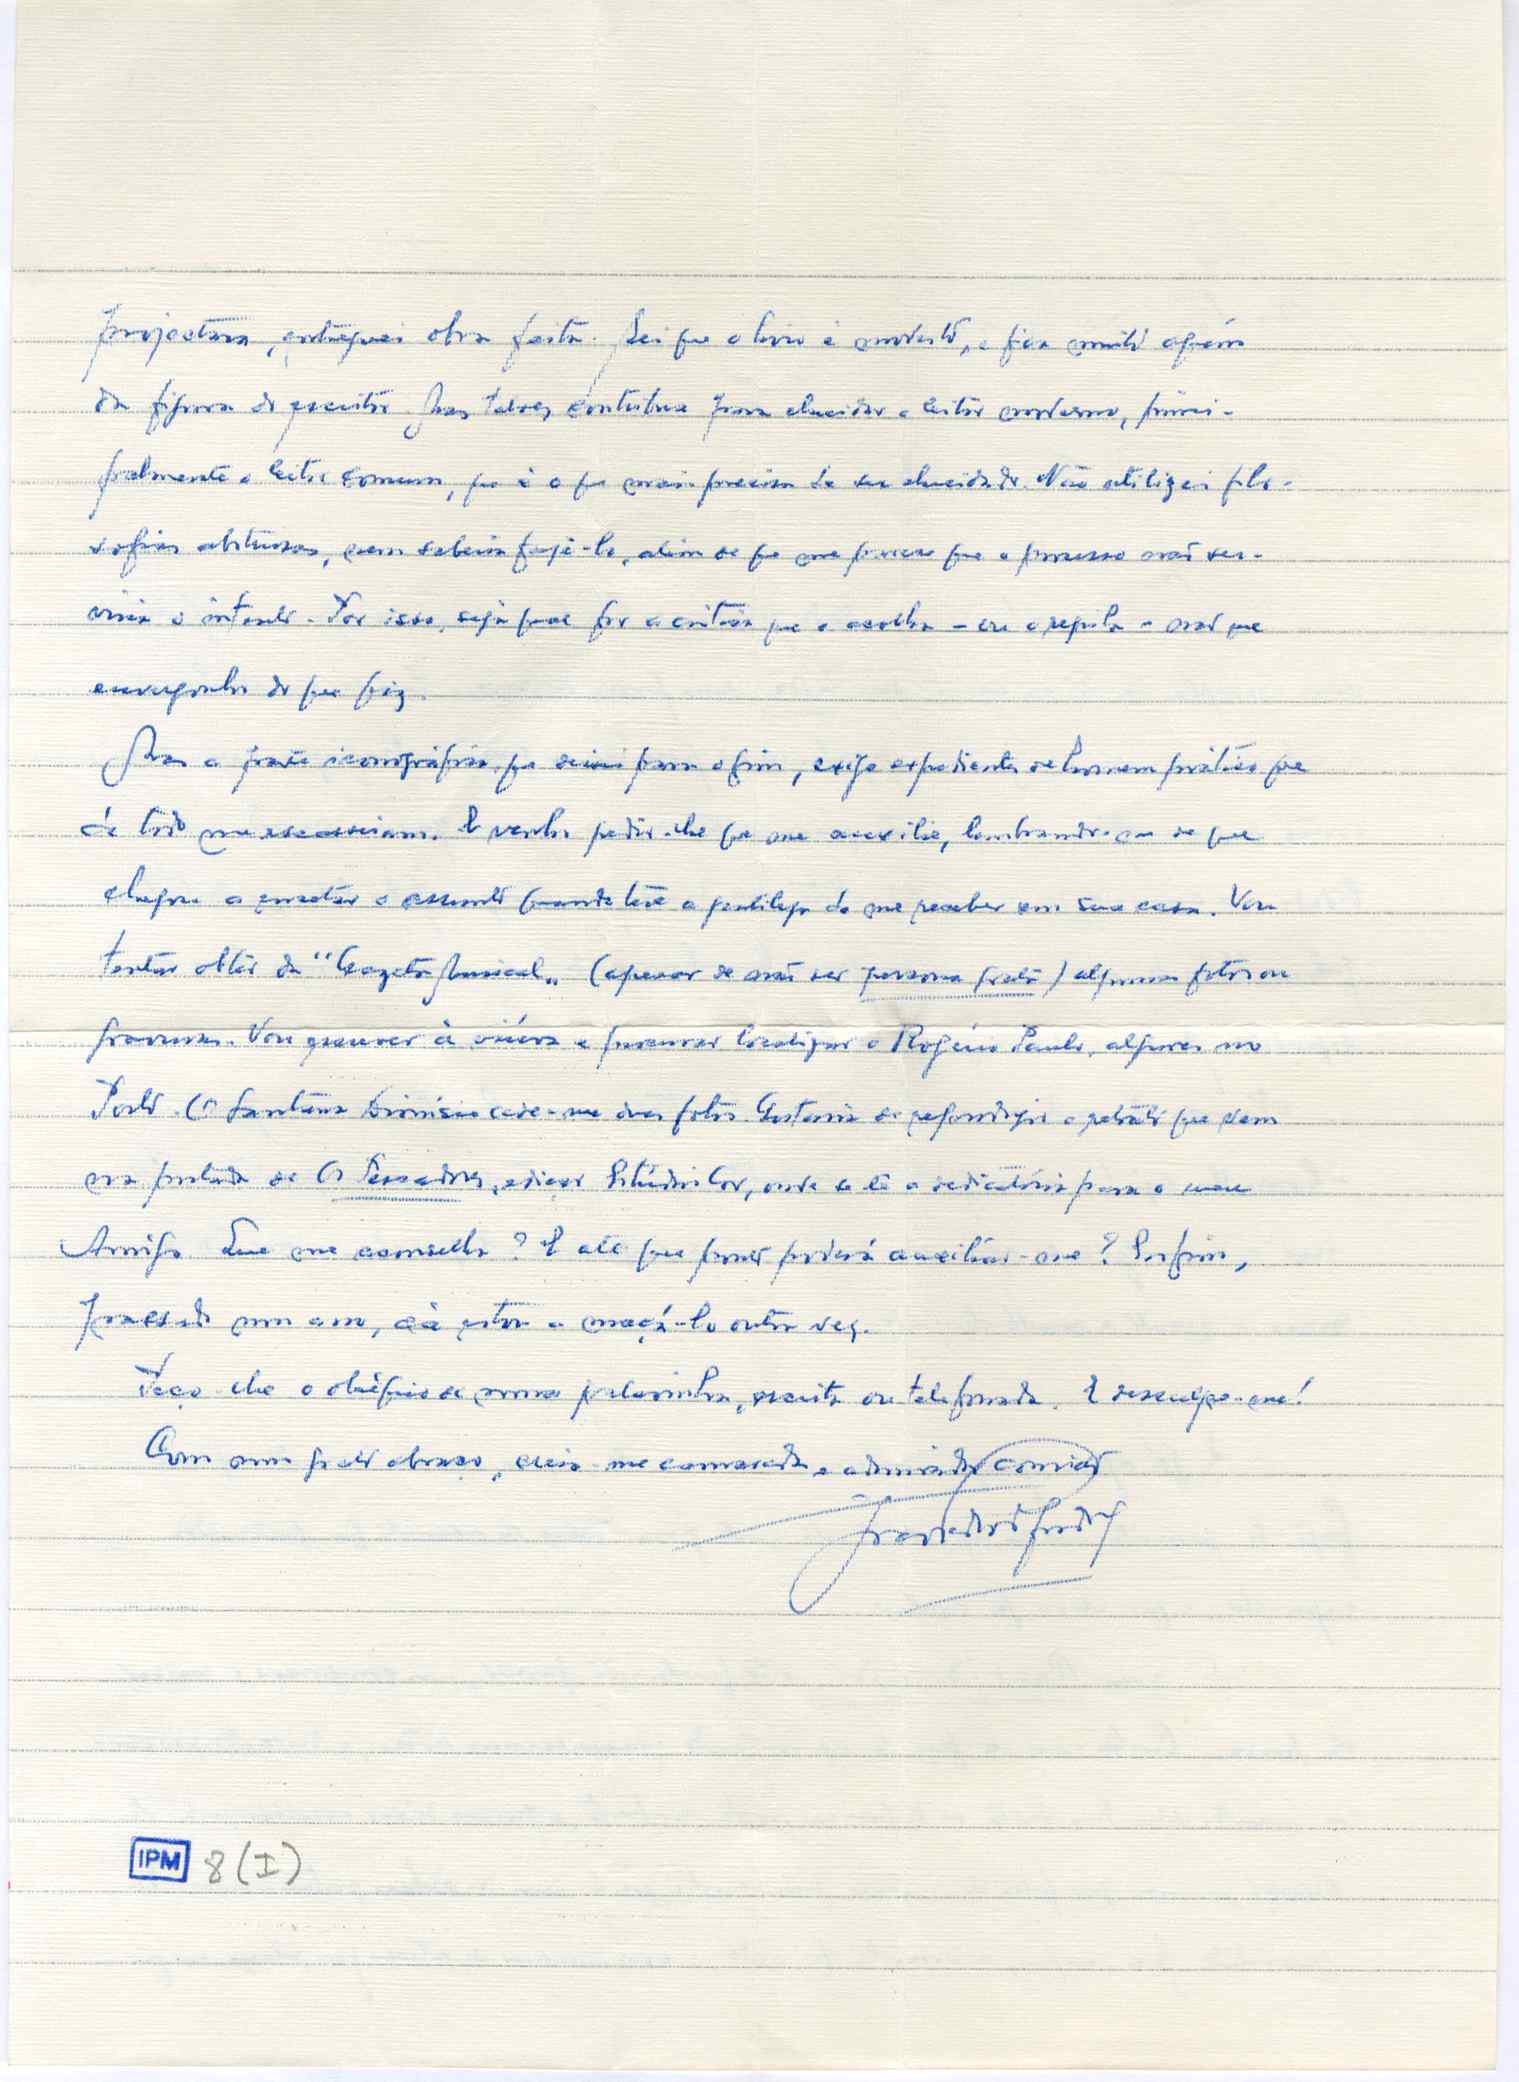 projectara, entreguei obra feita. Sei que o livro é modesto, e fica muito aquém
da figura do escritor. Mas talvez contribua para elucidar o leitor moderno, princi-
palmente o leitor comum, que é o que mais precisa de ser elucidado. Não utilizei filo-
sofias abstrusas, nem saberia fazê-lo, além de que me parece que o processo não ser-
viria o intento. Por isso, seja qual for a crítica que o acolha - ou o repila - não me
envergonho do que fiz.
Mas a parte iconográfica, que deixei para o fim, exige expedientes de homem prático que
de todo me escasseiam. E venho pedir-lhe que me auxilie, lembrando-me de que
chegou a encetar o assunto quando teve a gentileza de me receber em sua casa. Vou
tentar obter da "Gazeta Musical" (apesar de não ser persona grata) algumas fotos ou
gravuras. Vou escrever à viúva e procurar localizar o Rogério Paulo, algures no
Porto. O Santana Dionísio cede-me duas fotos. Gostaria de reproduzir o retrato que vem
na portada de Os Pescadores, edição Estúdios Cor, onde se lê a dedicatória para o meu
Amigo. Que me aconselha? E até que ponto poderá auxiliar-me? Enfim,
passado um ano, cá estou a maçá-lo outra vez.
Peço-lhe o obséquio de uma palavrinha, escrita ou telefonada. E desculpe-me!
Com um grato abraço, creia-me camarada e admirador
IPM 8 (I)